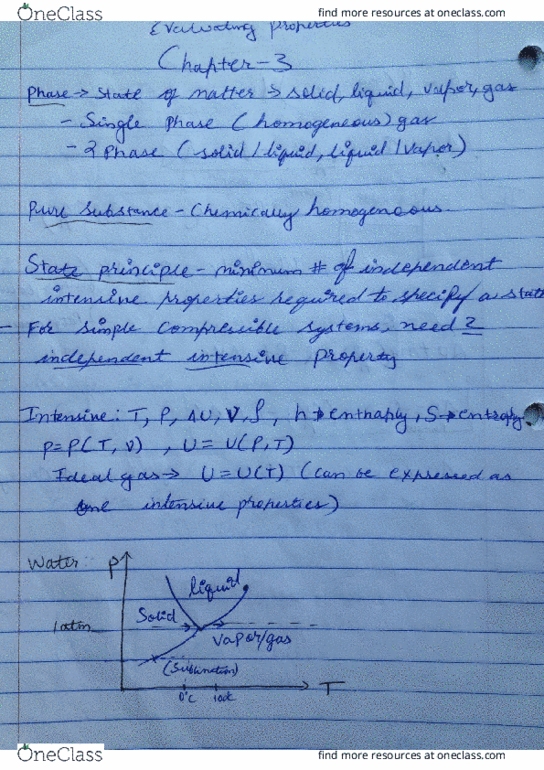 OneClass
find more resources at oneclass.com
Evaluating properties
Chapter-3
Phase → State of matter → solid, liquid, vapor, gas
- Single Phase (homogeneous) gas
- 2 Phase (solid/liquid, liquid/vapor)
Pure Substance - Chemically homogeneous.
State principle - minimum # of independent
intensive properties required to specify a stat
- For simple compressible systems, need 2
independent intensive property
Intensive: T, P, ΔU, V, ρ, h→enthaply, S→entropy.
P=P(T, V) , U= U(P,T)
Ideal gas → U=U(T) (can be expressed as
one intensive properties)
Water P
liquid
Solid
1atm
vapor/gas
(Sublimation)
0°C 100
T
OneClass
find more resources at oneclass.com